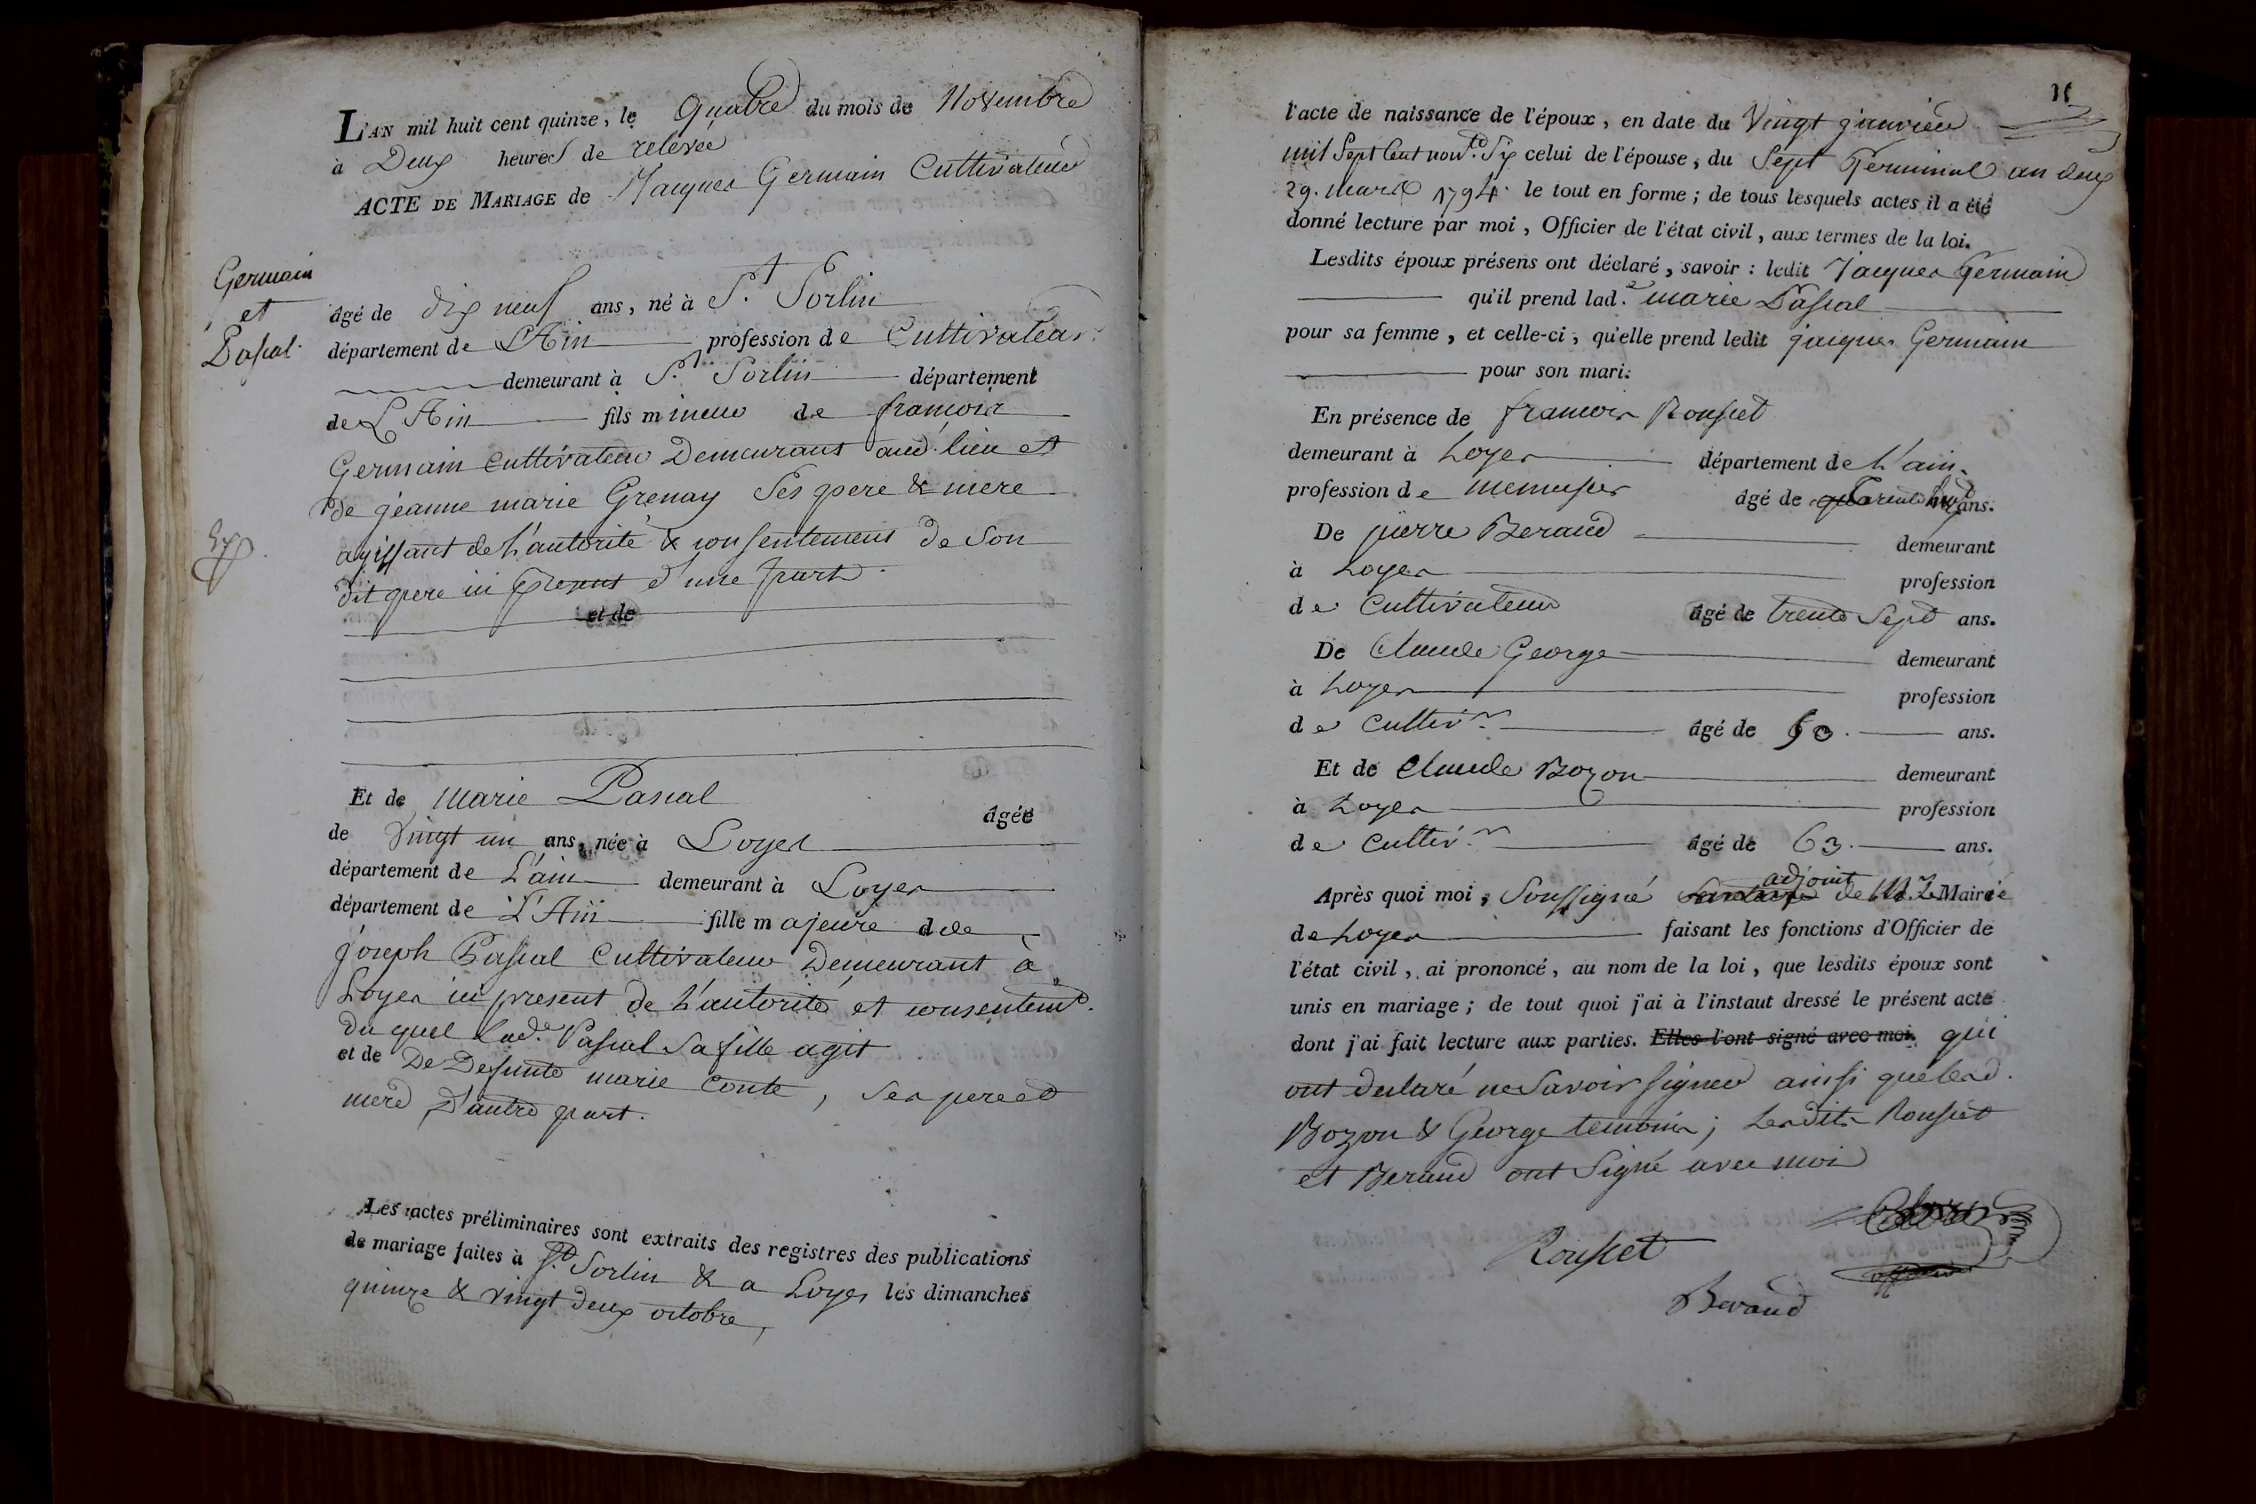 L'AN mil huit cent quinze, le quatre du mois de Novembre
à Deux heures de relevée
ACTE DE MARIAGE de Jacques Germain Cultivateur
Germain
et
Pascal.
âgé de dix neuf ans, né à St. Sorlin
département de L'Ain profession de Cultivateur
demeurant à St. Sorlin département
de L'Ain fils mineur de francois
Germain cultivateur Demeurant aud. lieu et
de jeanne marie Grenay Ses pere & mere
agissant de L'autorité & consentement de Son
dit pere ici present d'une part.
et de
Et de Marie Pascal âgée
de Vingt un ans, née à Loyes
département de L'ain demeurant à Loyes
département de L'Ain fille majeure de
joseph Pascal Cultivateur Demeurant à
Loyes ici present de L'autorité et consentemt.
du quel lade. Pascal sa fille agit
et de De Defunte marie Conte, Ses pere et
mere D'autre part.
Les actes préliminaires sont extraits des registres des publications
de mariage faites à St. Sorlin & a Loyes les dimanches
quinze & vingt deux octobre,
l'acte de naissance de l'époux, en date du Vingt janvier
mil Sept Cent nonte. Six celui de l'épouse, du Sept Germinal an deux
29. mars 1794. le tout en forme; de tous lesquels actes il a été
donné lecture par moi, Officier de l'état civil, aux termes de la loi.
Lesdits époux présens ont déclaré, savoir: ledit Jacques Germain
qu'il prend lad.e marie Pascal
pour sa femme, et celle-ci, qu'elle prend ledit jacques Germain
pour son mari.
En présence de francois Rousset
demeurant à Loyes département de L'ain.
profession de menuisier âgé de ans.
De pierre Beraud demeurant
à Loyes profession
de Cultivateur âgé de trente Sept ans.
De Claude George demeurant
à Loyes profession
de Cultivr. âgé de 50. ans.
Et de Claude Bozon demeurant
à Loyes profession
de Cultivr. âgé de 63. ans.
adjoint
Après quoi moi, Soussigné de Mr. Le Mairie
de Loyes faisant les fonctions d'Officier de
l'état civil, ai prononcé, au nom de la loi, que lesdits époux sont
unis en mariage; de tout quoi j'ai à l'instaut dressé le présent acte
dont j'ai fait lecture aux parties. Elles l'ont signé avec moi. qui
ont declaré ne Savoir Signer ainsi que lesd.
Bozon & George temoins; Lesdits Rousset
et Beraud ont Signé avec moi
Rousset
Beraud